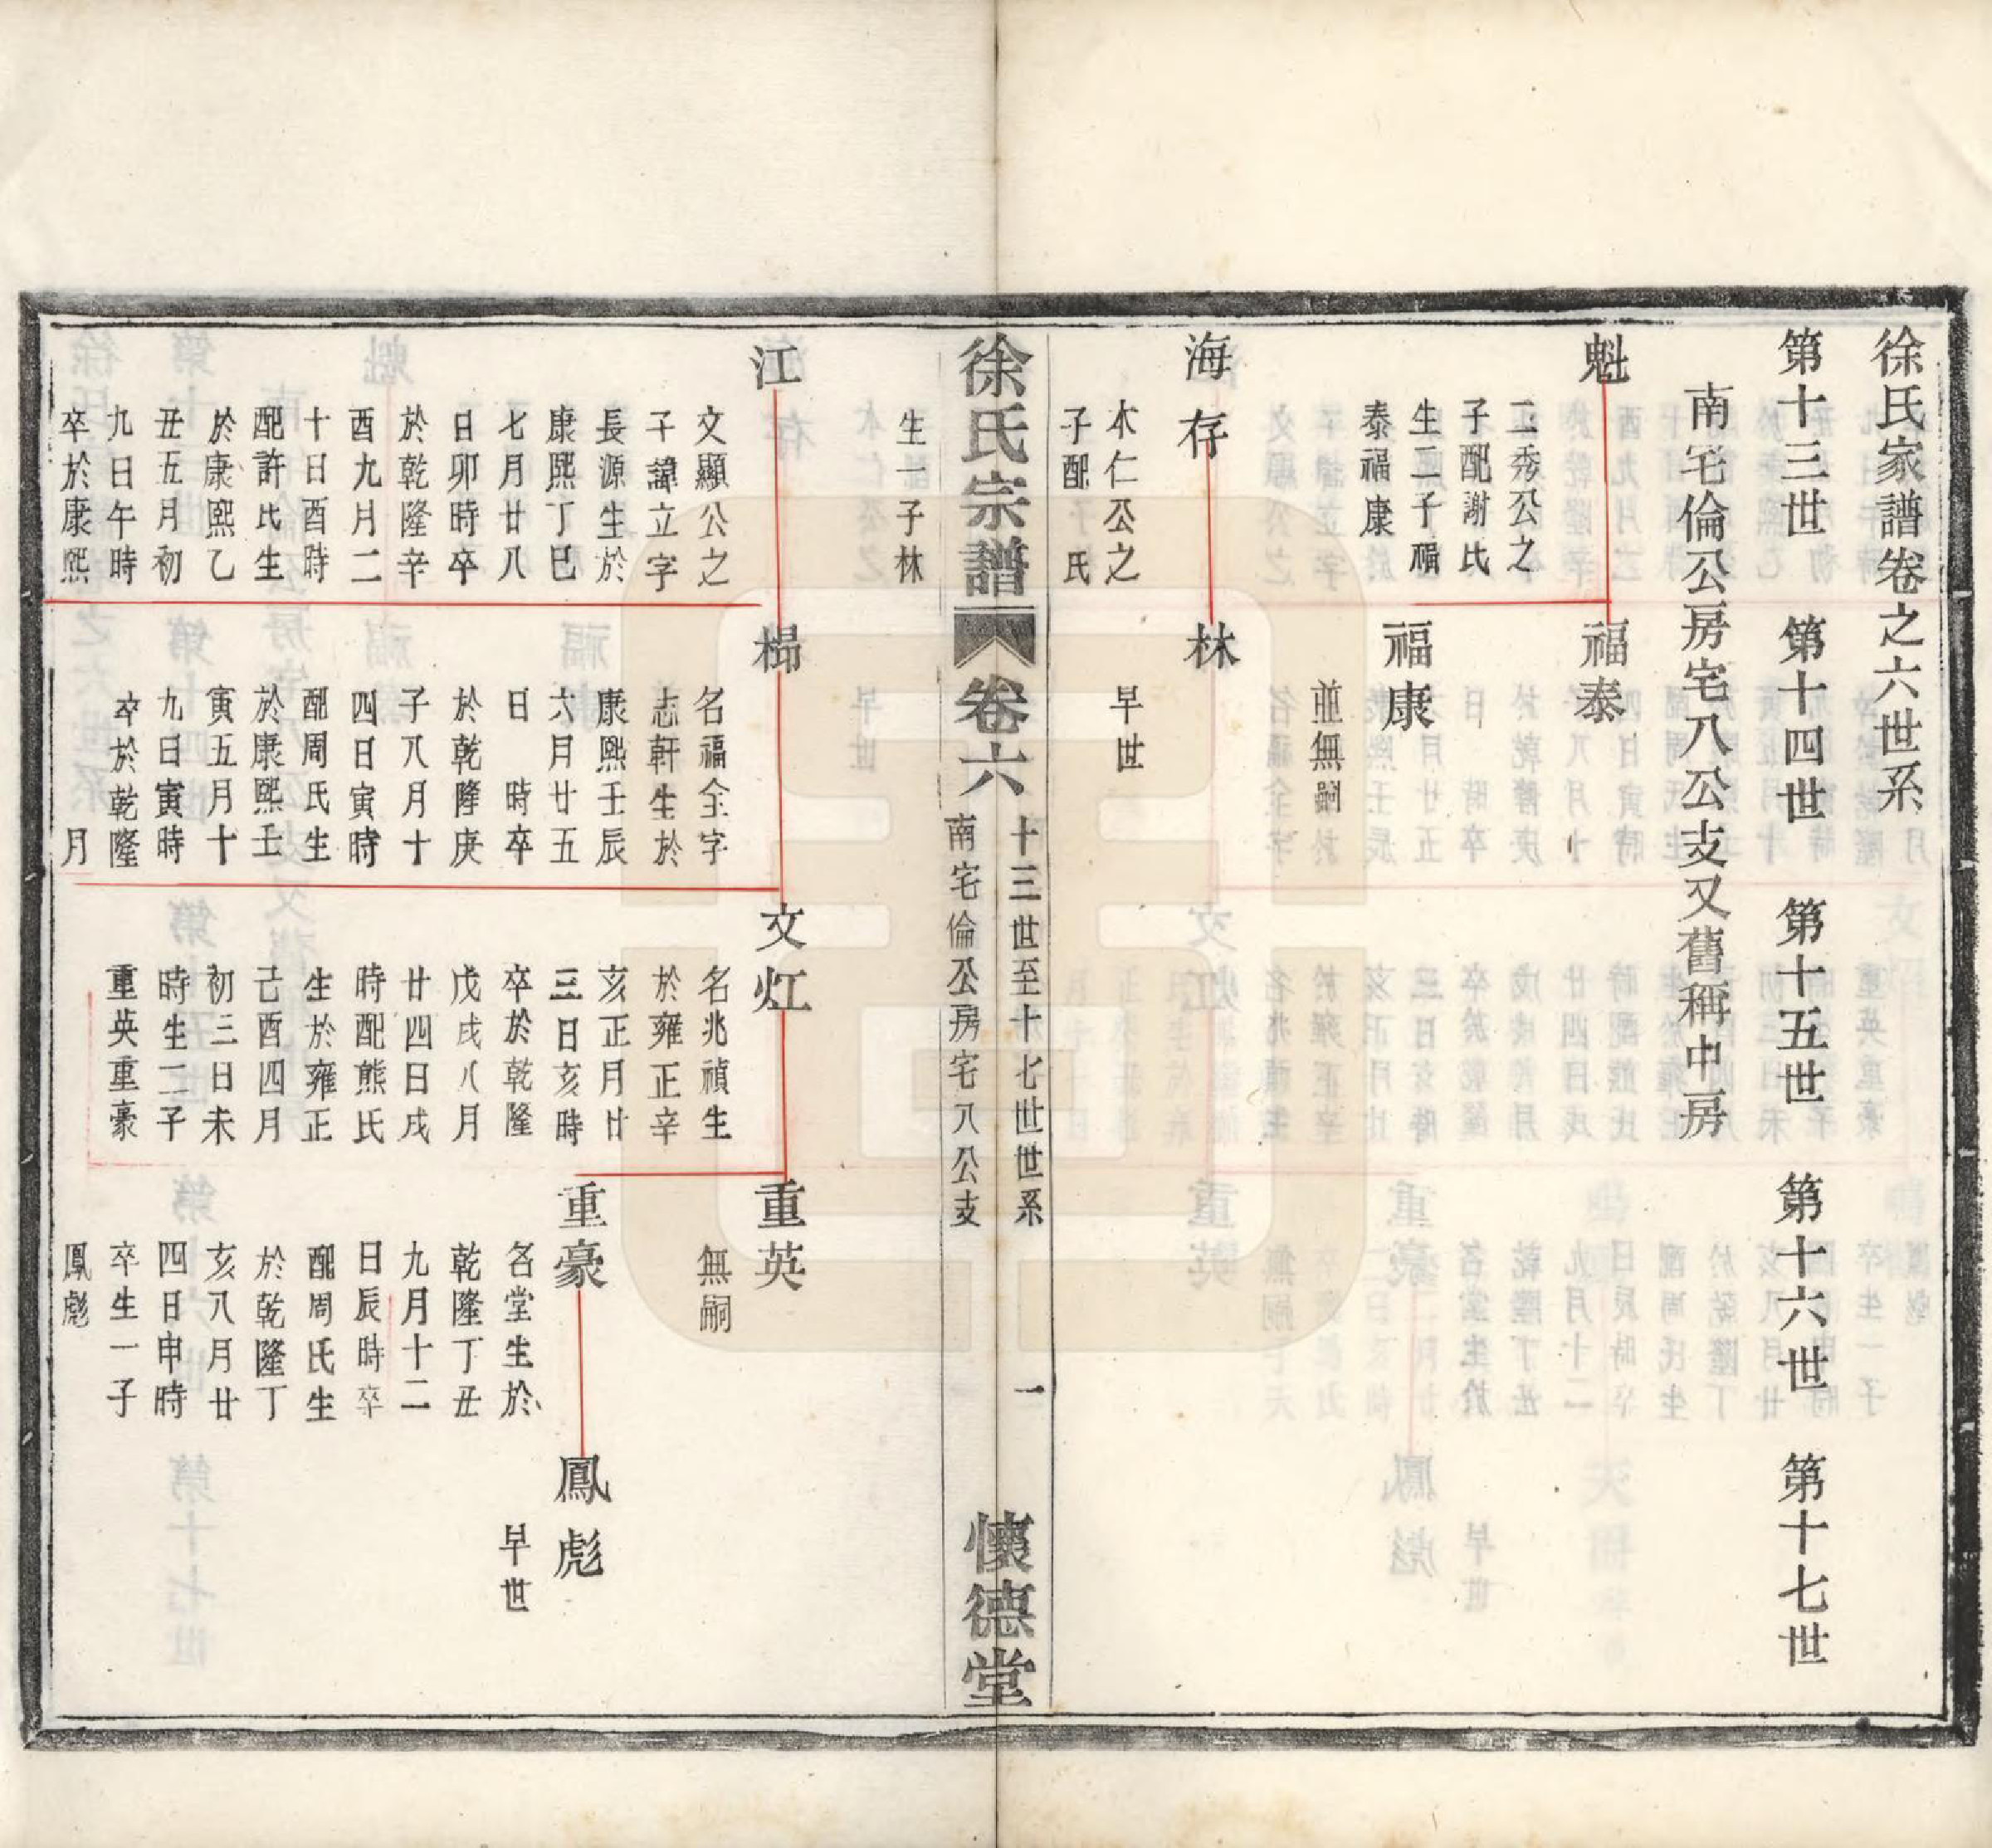 徐氏家譜卷之六世系
第十三世 第十四世 第十五世 第十六世 第十七世
南宅倫公房宅八公支又舊稱中房
魁
二秀公之
子配謝氏
生二子福
泰福康
福泰
福康
並無嗣
海存
木仁公之
子配 氏
生一子林
林
早世
徐氏宗譜 卷六
十三世至十七世世系
南宅倫公房宅八公支
一
懷德堂
江
文顯公之
子諱立字
長源生於
康熙丁巳
七月廿八
日卯時卒
於乾隆辛
酉九月二
十日酉時
配許氏生
於康熙乙
丑五月初
九日午時
卒於康熙
月
名福全字
志軒生於
康熙壬辰
六月廿五
日 時卒
於乾隆庚
子八月十
四日寅時
配周氏生
於康熙壬
寅五月十
九日寅時
卒於乾隆
文灴
名兆禎生
於雍正辛
亥正月廿
三日亥時
卒於乾隆
戊戌八月
廿四日戌
時配熊氏
生於雍正
己酉四月
初三日未
時生二子
重英重豪
重英
無嗣
重豪
名堂生於
乾隆丁丑
九月十二
日辰時卒
配周氏生
於乾隆丁
亥八月廿
四日申時
卒生一子
鳳彪
鳳彪
早世